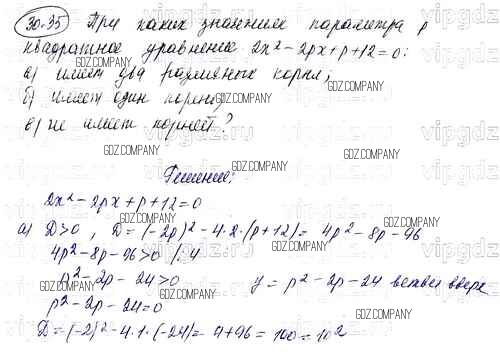 30.35 При каких значениях параметра p
квадратное уравнение 2x² - 2px + p + 12 = 0:
а) имеет два различных корня;
б) имеет один корень;
в) не имеет корней?
Решение:
2x² - 2px + p + 12 = 0
а) D > 0, D = (-2p)² - 4·2·(p + 12) = 4p² - 8p - 96
4p² - 8p - 96 > 0 /:4
p² - 2p - 24 > 0
y = p² - 2p - 24 ветви вверх
p² - 2p - 24 = 0
D = (-2)² - 4·1·(-24) = 4 + 96 = 100 = 10²
GDZ.COMPANY
vipgdz.ru